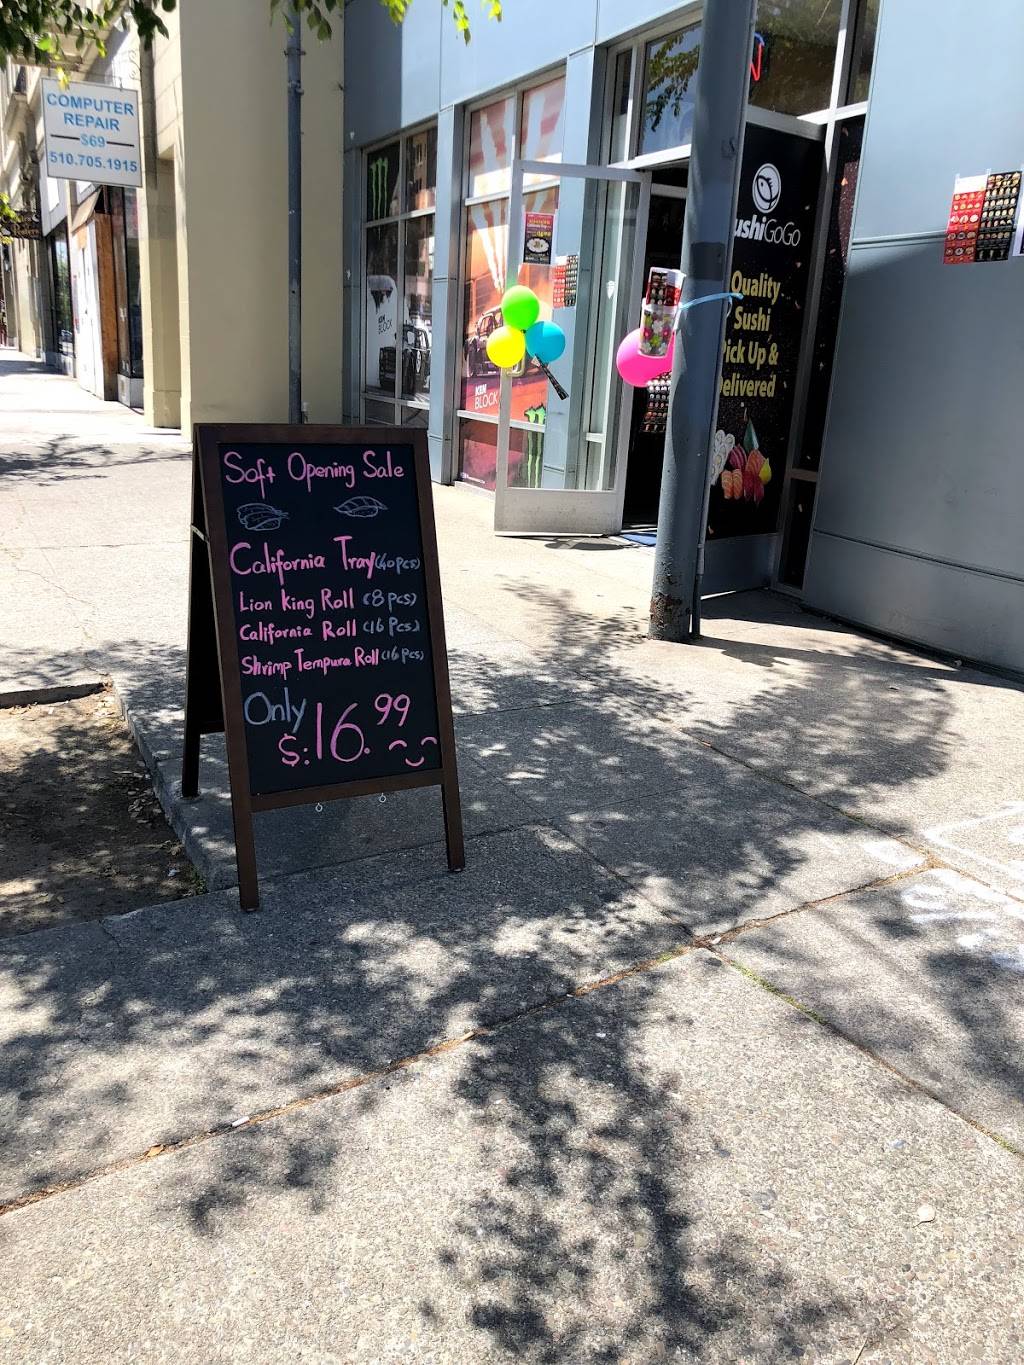 COMPUTER
REPAIR
$69
510.705.1915
ushiGoGo
Quality
Sushi
Pick Up &
Delivered
KEN
BLOCK
KEN
BLOCK
Soft Opening Sale
California Tray (40 pcs)
Lion King Roll (8 pcs)
California Roll (16 Pcs)
Shrimp Tempura Roll (16 Pcs)
Only
$:16.99